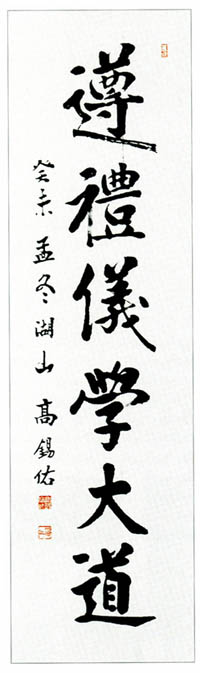 遵禮儀學大道
癸未孟冬湖山高錫佑